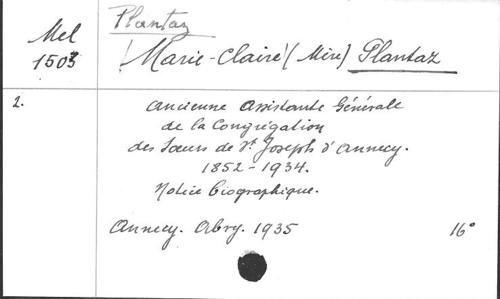 Plantaz
Mel
1503
Marie-Claire (Mère) Plantaz
2.
Ancienne Assistante Générale
de la Congrégation
des Sœurs de St Joseph d'Annecy.
1852-1934.
Notice biographique.
Annecy. Abry. 1935
16°